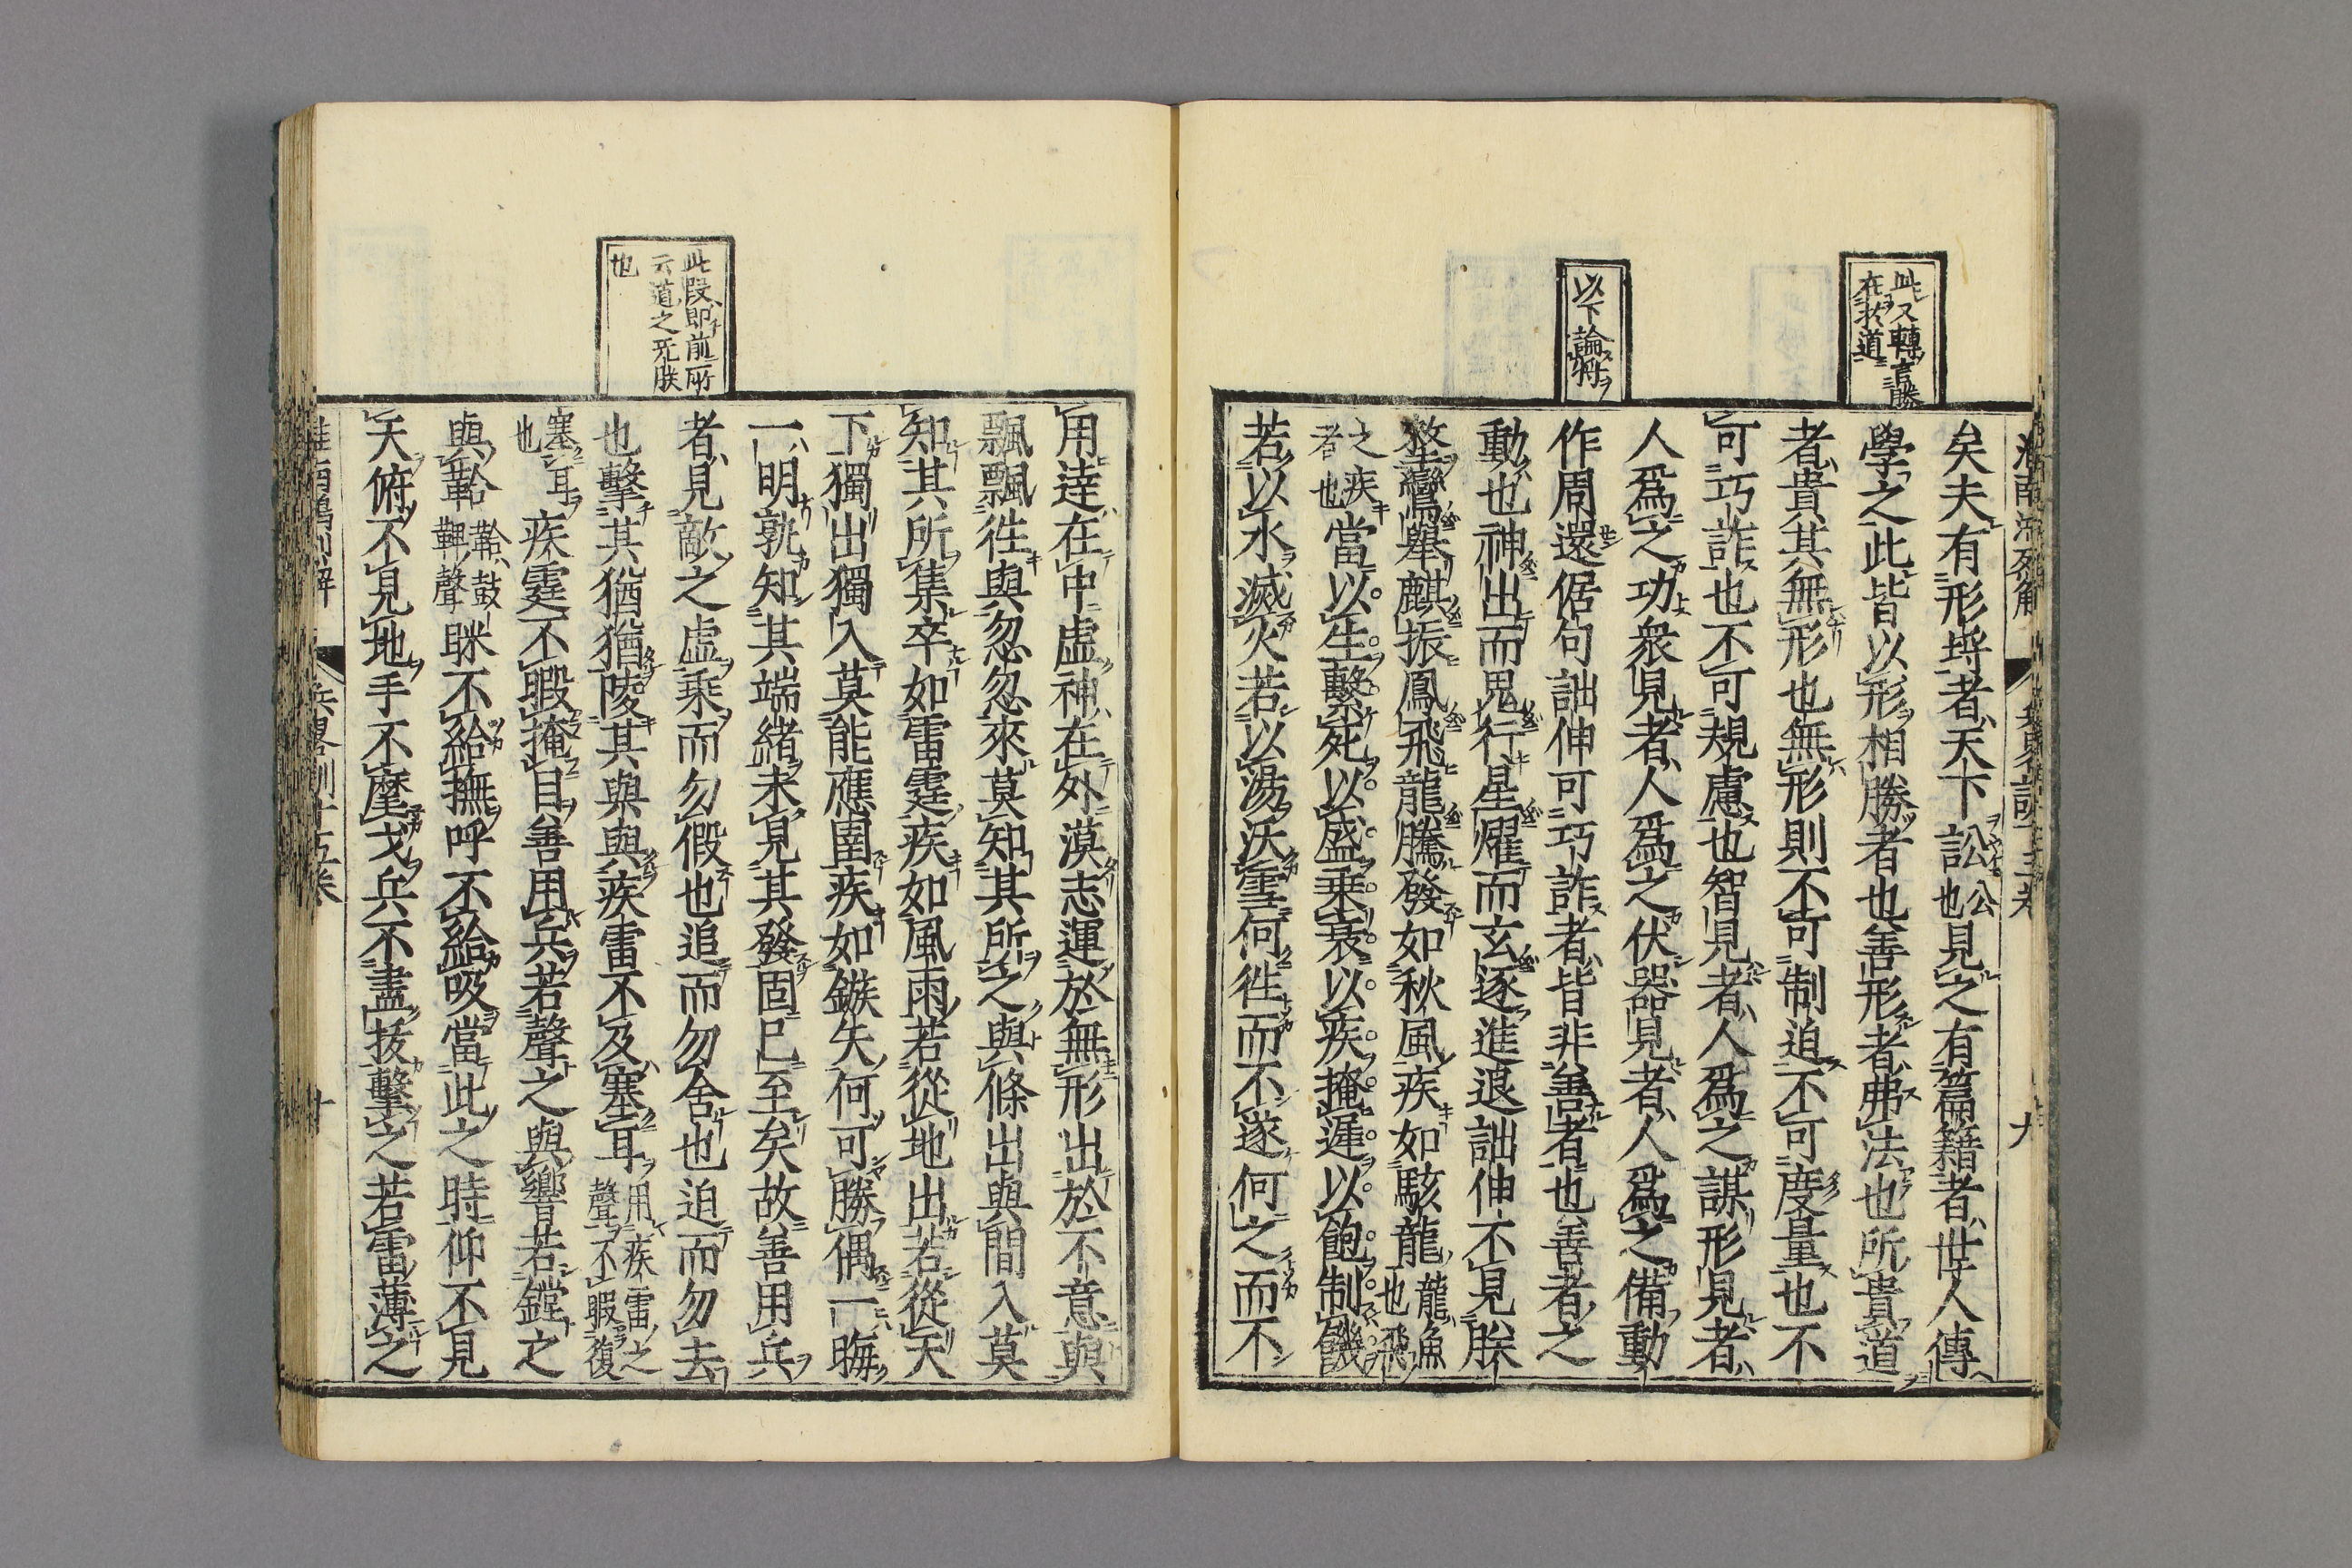 此又轉言勝
在於道
以下論將
矣夫有形埒者天下訟公也見之有篇籍者世人傳
學之此皆以形相勝者也善形者弗法也所貴道
者貴其無形也無形則不可制迫不可度量也不
可巧詐也不可規慮也智見者人爲之謀形見者
人爲之功衆見者人爲之伏器見者人爲之備動
作周還倨句詘伸可巧詐者皆非善者也善者之
動也神出而鬼行星燿而玄逐進退詘伸不見朕
整鸞舉麟振鳳飛龍騰發如秋風疾如駭龍龍魚也飛
之疾者也當以生擊死以盛乗衰以疾掩遲以飽制饑
若以水滅火若以湯沃雪何徃而不遂何之而不
此段即前所
云道之无朕
也
用逹在中虛神在外漠志運於無形出於不意與
飄飄徃與忽忽來莫知其所之與條出與間入莫
知其所集卒如雷霆疾如風雨若從地出若從天
下獨出獨入莫能應圉疾如鏃矢何可勝偶一晦
一明孰知其端緒未見其發固已至矣故善用兵
者見敵之虛乗而勿假也追而勿舍也迫而勿去
也擊其猶猶陵其與與疾雷不及塞耳用疾雷之聲不暇復
塞耳也疾霆不暇掩目善用兵若聲之與響若鏜之
與鞈鞈鼓鞞聲眯不給撫呼不給吸當此之時仰不見
天俯不見地手不麾戈兵不盡拔擊之若雷薄之